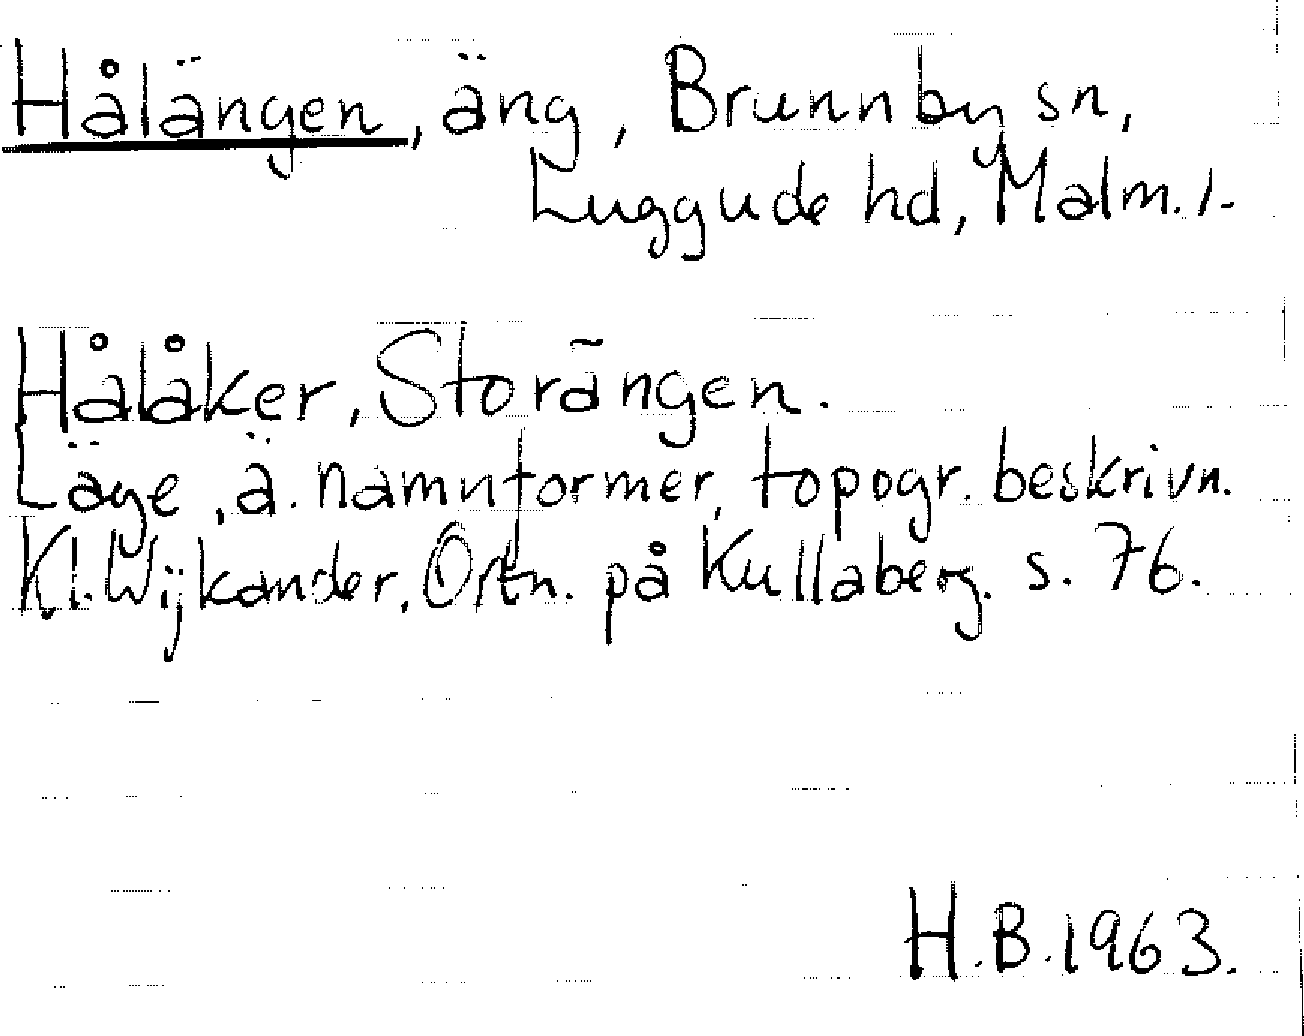 Hålängen, äng, Brunnby sn,
Luggude hd, Malm. l.
Hålåker, Storängen.
Läge, ä. namnformer, topogr. beskrivn.
Kl. Wijkander, Ortn. på Kullaberg. s. 76.
H.B. 1963.